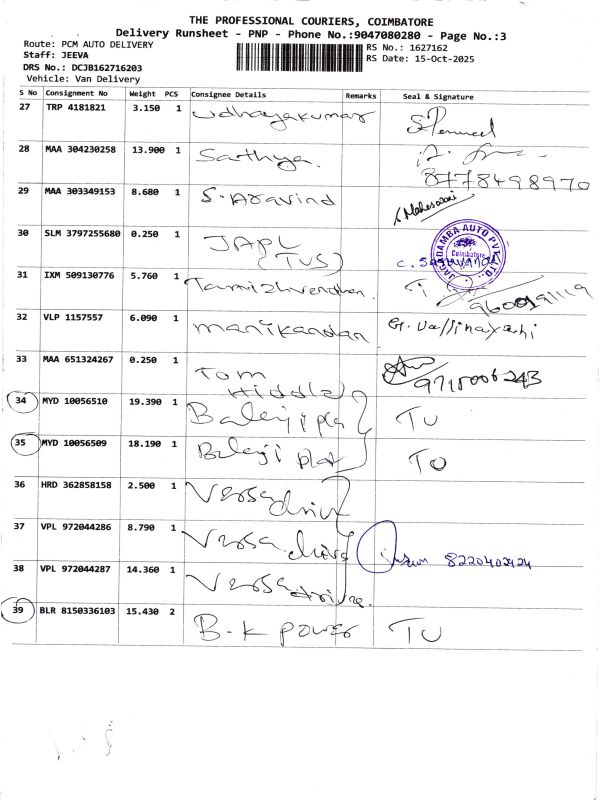 THE PROFESSIONAL COURIERS, COIMBATORE
Delivery Runsheet - PNP - Phone No.:9047080280 - Page No.:3
Route: PCM AUTO DELIVERY
RS No.: 1627162
Staff: JEEVA
RS Date: 15-Oct-2025
DRS No.: DCJB162716203
Vehicle: Van Delivery
S No Consignment No Weight PCS Consignee Details Remarks Seal & Signature
27 TRP 4181821 3.150 1 Udhayakumar
28 MAA 304230258 13.900 1 Sathya.
8778498970
29 MAA 303349153 8.680 1 S. Aravind
30 SLM 3797255680 0.250 1 JAPL
(TVS)
JAGADAMBA AUTO PVT. LTD.
Coimbatore
31 IXM 509130776 5.760 1 Tamizhvendhan.
9600191119
32 VLP 1157557 6.090 1 manikandan
33 MAA 651324267 0.250 1 TOM
Hiddle
9715006243
34 MYD 10056510 19.390 1 Balaji pla TU
35 MYD 10056509 18.190 1 Balaji plat TU
36 HRD 362858158 2.500 1 Versa drive
37 VPL 972044286 8.790 1 Versa drive
8220402424
38 VPL 972044287 14.360 1 Versa drive.
39 BLR 8150336103 15.430 2 B.K power TU